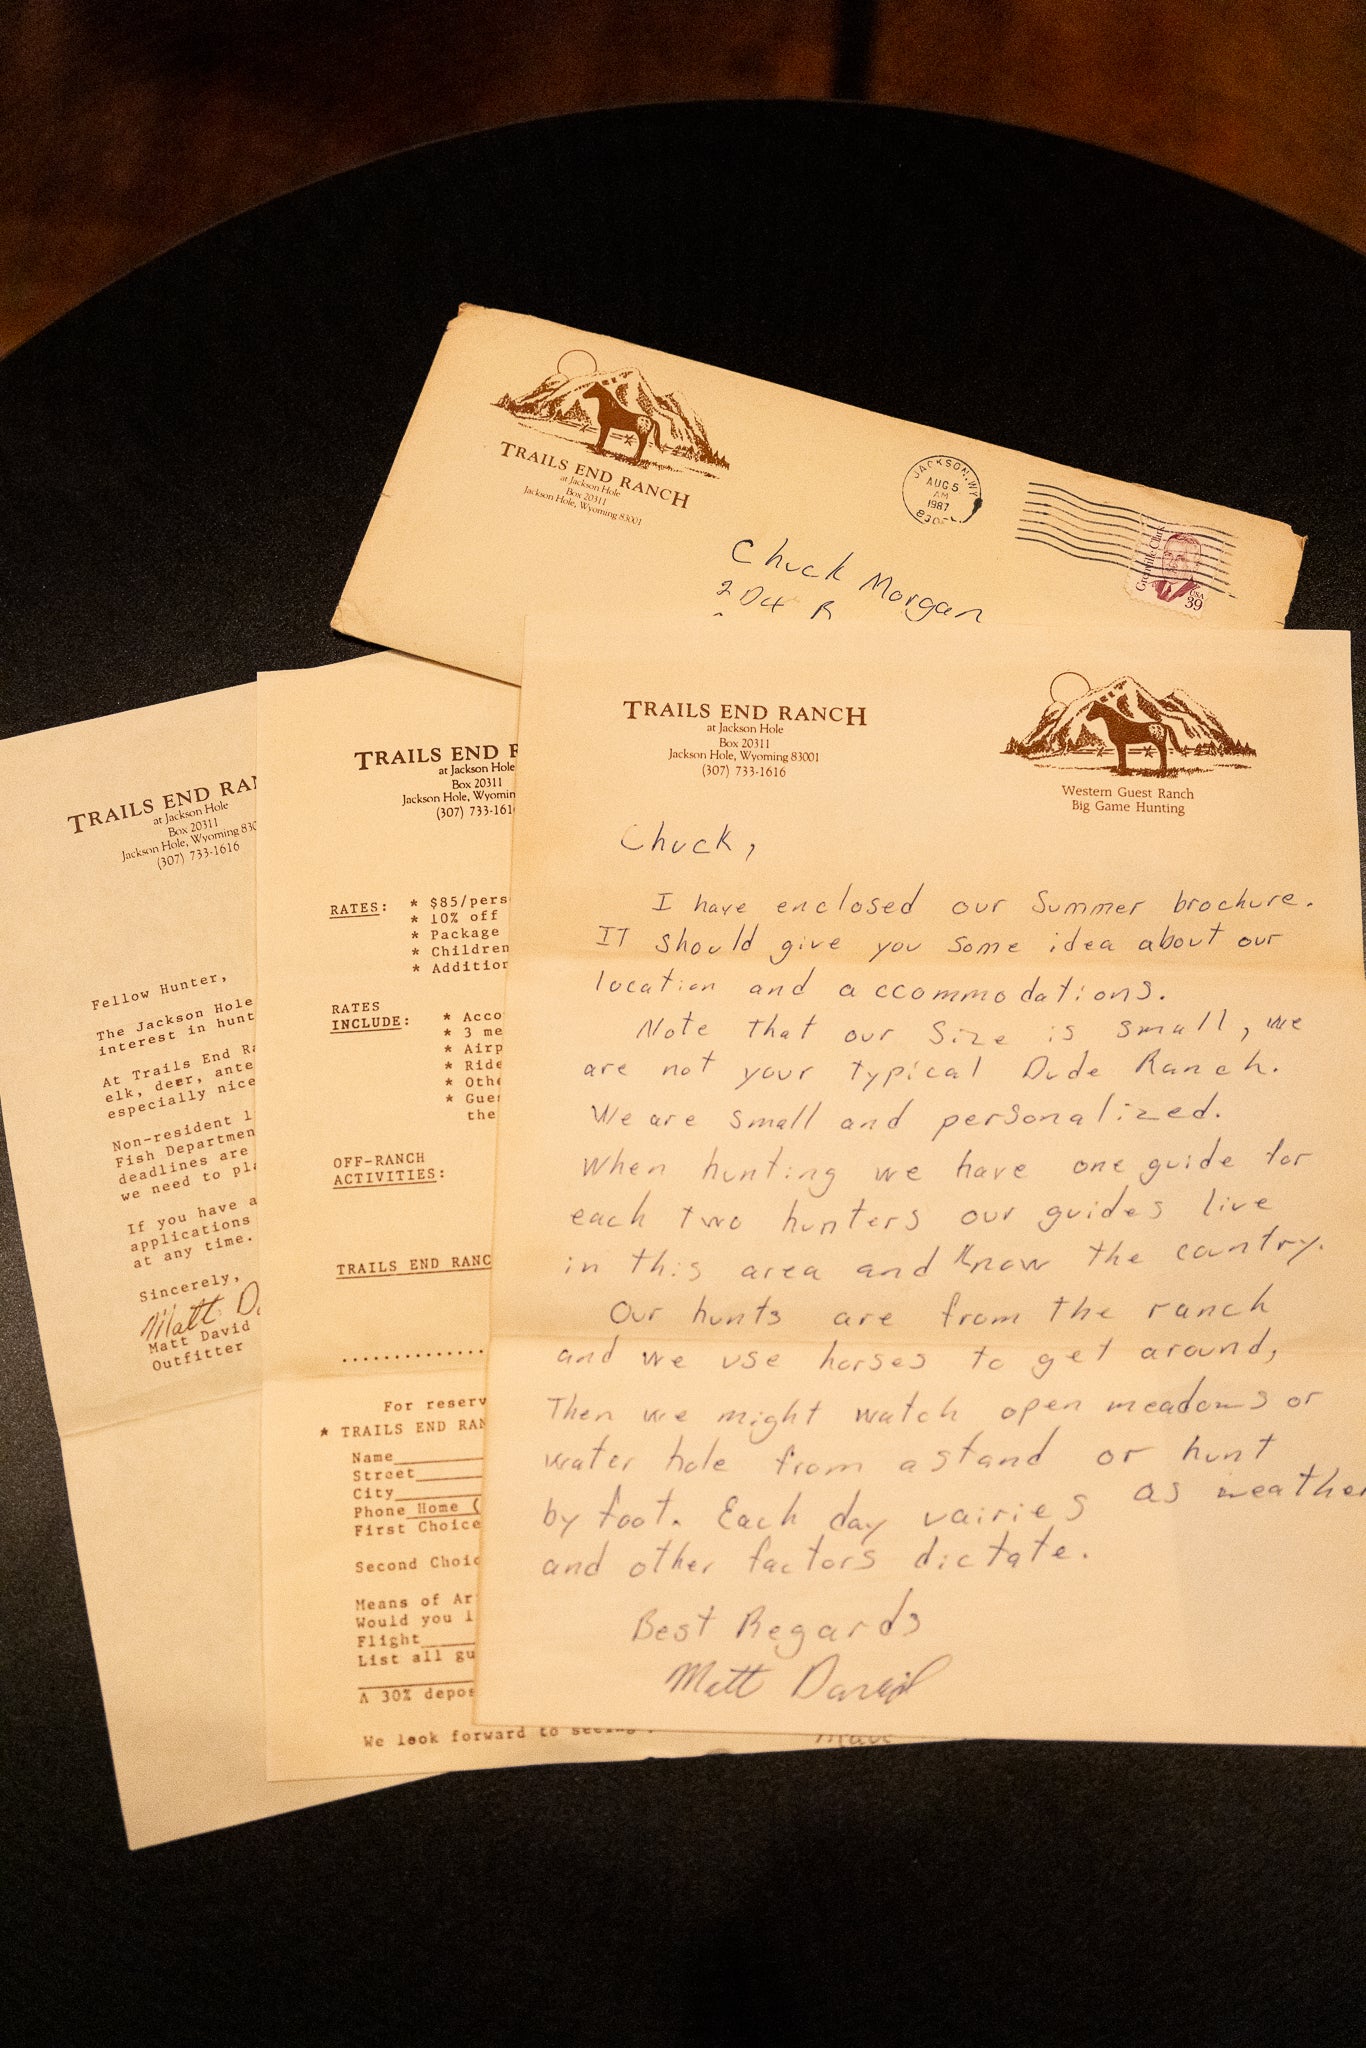 TRAILS END RANCH
at Jackson Hole
Box 20311
Jackson Hole, Wyoming 83001
JACKSON, WY
AUG 5
AM
1987
Grenville Clark
USA
39
Chuck Morgan
2
TRAILS END RAN
at Jackson Hole
Box 20311
Jackson Hole, Wyoming 830
(307) 733-1616
Fellow Hunter,
The Jackson Hole
interest in hunt
At Trails End Ra
elk, deer, ante
especially nice
Non-resident l
Fish Departmen
deadlines are
we need to pla
If you have a
applications
at any time.
Sincerely,
Matt D
Matt David
Outfitter
TRAILS END R
at Jackson Hole
Box 20311
Jackson Hole, Wyomin
(307) 733-161
RATES: * $85/pers
* 10% off
* Package
* Children
* Addition
RATES
INCLUDE: * Acco
* 3 me
* Airp
* Ride
* Othe
* Gues
the
OFF-RANCH
ACTIVITIES:
TRAILS END RANC
For reserv
* TRAILS END RAN
Name
Street
City
Phone Home (
First Choice
Second Choic
Means of Ar
Would you l
Flight
List all gu
A 30% depos
We look forward to seeing
TRAILS END RANCH
at Jackson Hole
Box 20311
Jackson Hole, Wyoming 83001
(307) 733-1616
Western Guest Ranch
Big Game Hunting
Chuck,
I have enclosed our Summer brochure.
IT should give you some idea about our
location and accommodations.
Note that our size is small, we
are not your typical Dude Ranch.
We are small and personalized.
When hunting we have one guide for
each two hunters our guides live
in this area and know the country.
Our hunts are from the ranch
and we use horses to get around,
Then we might watch open meadows or
water hole from a stand or hunt
by foot. Each day vairies as weather
and other factors dictate.
Best Regards
Matt David